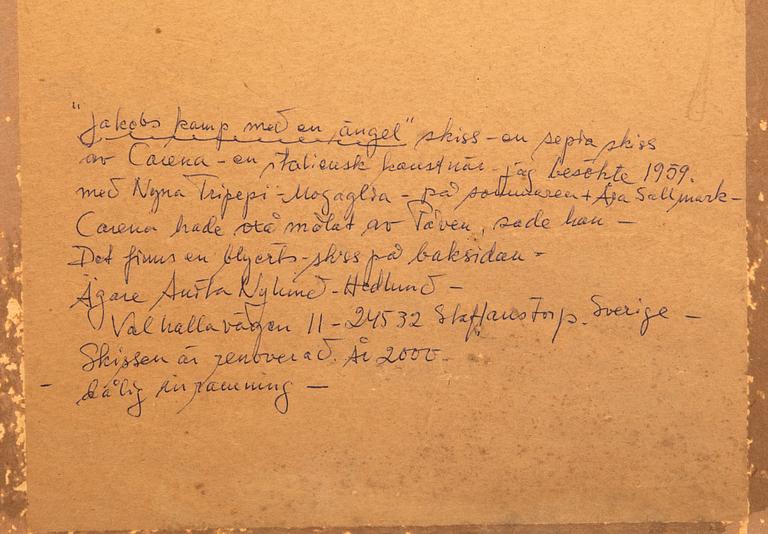 "Jakobs kamp med en ängel" skiss - en sepia skiss
av Carena - en italiensk konstnär jag besökte 1959.
med Nyna Tripepi - - på sommaren + Åsa Sallmark -
Carena hade målat av Påven, sade han -
Det finns en blyerts-skiss på baksidan -
Ägare Anita Nylund - Hedlund -
Valhallavägen 11 - 24532 Staffanstorp. Sverige -
Skissen är renoverad. År 2000 -
- dålig inramning -